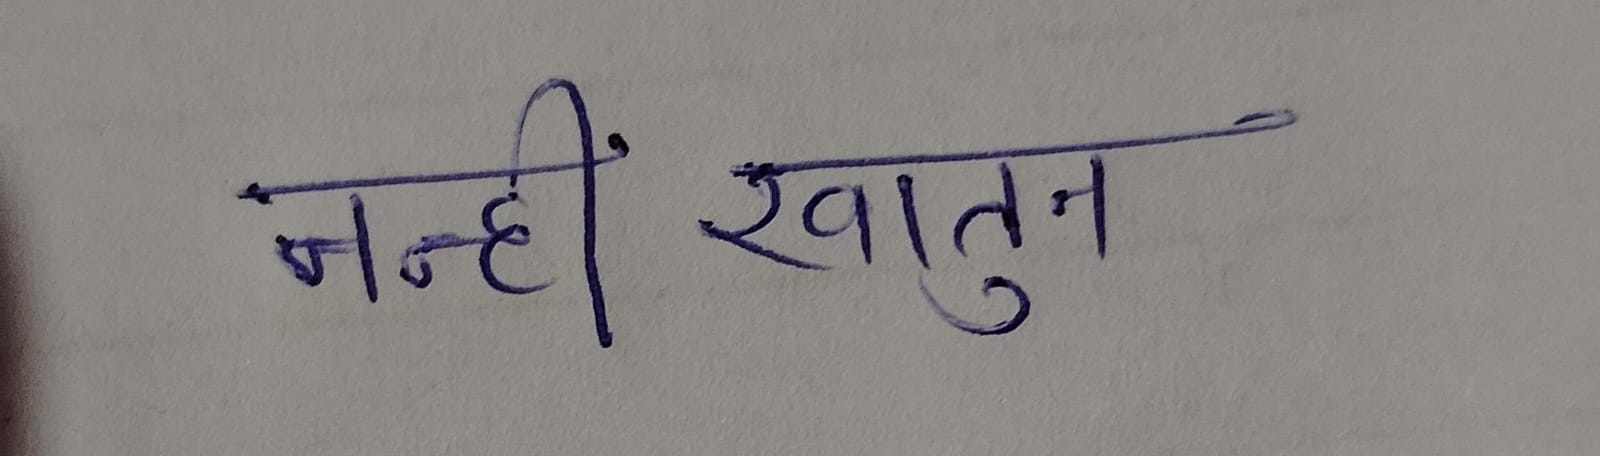 नन्हीं खातुन